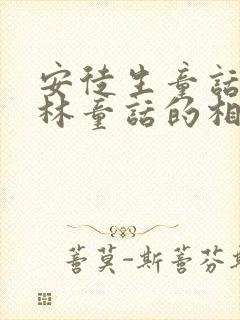 安徒生童話
林童話的相
蓍莫-斯蓍芬